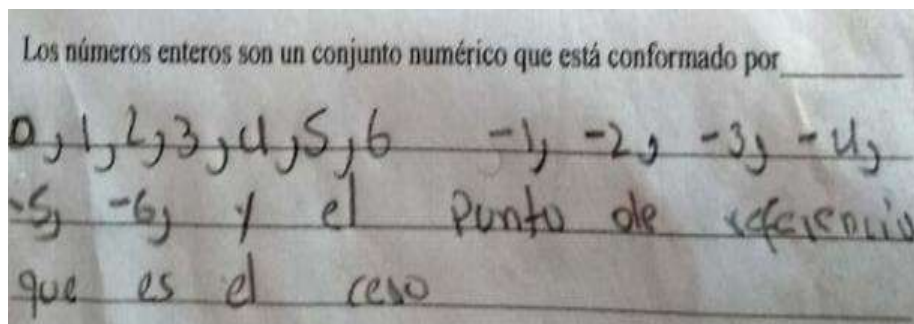 Los números enteros son un conjunto numérico que está conformado por
0, 1, 2, 3, 4, 5, 6 -1, -2, -3, -4,
-5, -6, y el punto de referencia
que es el cero